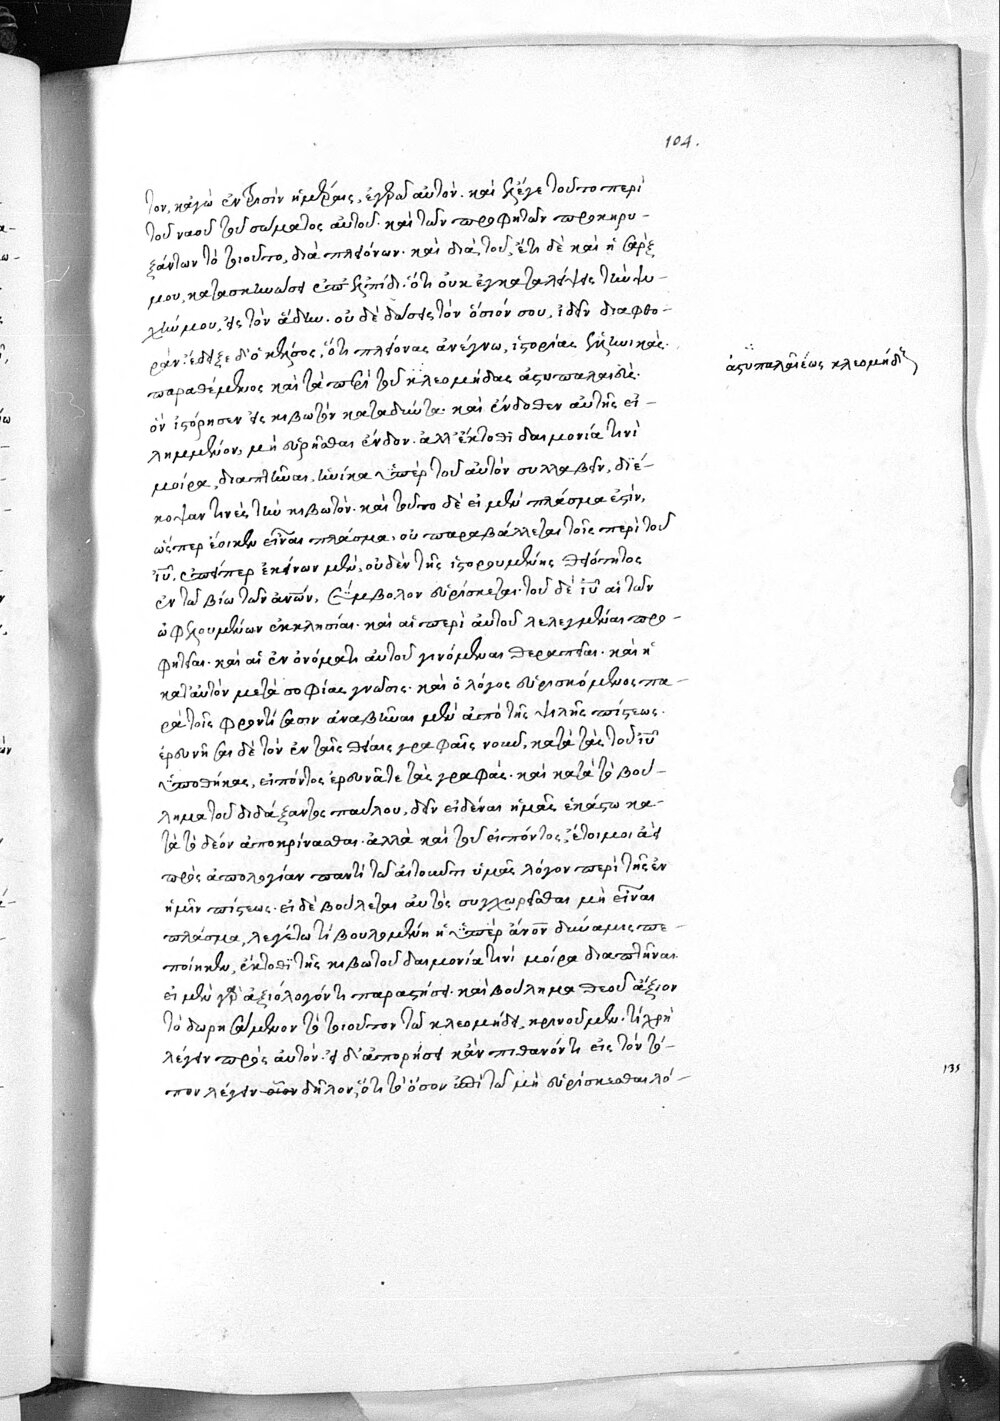 104.
τον, κἀγὼ ἐν τρισὶν ἡμέραις, ἐγερῶ αὐτόν· καὶ ἔλεγε τοῦτο περὶ
τοῦ ναοῦ τοῦ σώματος αὐτοῦ· καὶ τῶν προφητῶν προκηρυ-
ξάντων τὸ τιοῦτο, διὰ πλειόνων· καὶ διὰ τοῦ, ἔτι δὲ καὶ ἡ σάρξ
μου, κατασκηνώσει ἐπ' ἐλπίδι· ὅτι οὐκ ἐγκαταλείψεις τὴν ψυ-
χήν μου, εἰς τὸν ἅδην· οὐδὲ δώσεις τὸν ὅσιόν σου, ἰδεῖν διαφθο-
ράν· ἔδειξε δ' ὁ κέλσος, ὅτι πλείονας ἀνέγνω, ἱστορίας ἑλληνικὰς·
παραθέμενος καὶ τὰ περὶ τοῦ κλεομήδας ἀστυπαλαιέως·
ὃν ἱστόρησεν εἰς κιβωτὸν καταδύντα· καὶ ἔνδοθεν αὐτῆς εἰ-
λημμένον, μὴ εὑρῆσθαι ἔνδον· ἀλλ' ἔκτοθι δαιμονία τινὶ
μοίρα, διαπτῆναι, ἡνίκα ὑπὲρ τοῦ αὐτὸν συλλαβεῖν, διέ-
κοψαν τινὲς τὴν κιβωτόν· καὶ τοῦτο δὲ εἰ μὲν πλάσμα ἐστὶν,
ὥσπερ ἔοικεν εἶναι πλάσμα, οὐ παραβάλλεται τοῖς περὶ τοῦ
ἰῦ. ἐπείπερ ἐκείνων μὲν, οὐδὲν τῆς ἱστορουμένης θειότητος
ἐν τῶ βίω τῶν ἀνῶν, σύμβολον εὑρίσκεται· τοῦ δὲ ἰῦ αἱ τῶν
ὠφελουμένων ἐκκλησίαι· καὶ αἱ περὶ αὐτοῦ λελεγμέναι προ-
φητεῖαι· καὶ αἱ ἐν ὀνόματι αὐτοῦ γινόμεναι θεραπεῖαι· καὶ ἡ
κατ' αὐτὸν μετὰ σοφίας γνῶσις· καὶ ὁ λόγος εὑρισκόμενος πα-
ρὰ τοῖς φροντίσασιν ἀναβῆναι μὲν ἀπὸ τῆς ψιλῆς πίστεως·
ἐρευνῆσαι δὲ τὸν ἐν ταῖς θείαις γραφαῖς νοῦν, κατὰ τὰς τοῦ ἰῦ
ὑποθήκας, εἰπόντος ἐρευνᾶτε τὰς γραφάς· καὶ κατὰ τὸ βού-
λημα τοῦ διδάξαντος παύλου, δεῖν εἰδέναι ἡμᾶς ἑκάστω κα-
τὰ τὸ δέον ἀποκρίνασθαι· ἀλλὰ καὶ τοῦ εἰπόντος, ἕτοιμοι ἀεὶ
πρὸς ἀπολογίαν παντὶ τῶ αἰτοῦντι ὑμᾶς λόγον περὶ τῆς ἐν
ἡμῖν πίστεως· εἰ δὲ βούλεται αὐτὸς συγχωρεῖσθαι μὴ εἶναι
πλάσμα, λεγέτω τί βουλομένη ἡ ὑπὲρ ἄνον δύναμις πε-
ποίηκεν, ἔκτοθι τῆς κιβωτοῦ δαιμονία τινὶ μοίρα διαπτῆναι.
εἰ μὲν γὰρ ἀξιόλογόν τι παραστήσει· καὶ βούλημα θεοῦ ἄξιον
τὸ δωρησάμενον τὸ τιοῦτον τῶ κλεομήδει, κρινοῦμεν· τί χρὴ
λέγειν πρὸς αὐτόν· εἰ δ' ἀπορήσει κἂν πιθανόν τι εἰς τὸν τό-
πον λέγειν δῆλον, ὅτι τὸ ὅσον ἐπὶ τῶ μὴ εὑρίσκεσθαι λό-
ἀστυπαλαιέως κλεομήδης
135